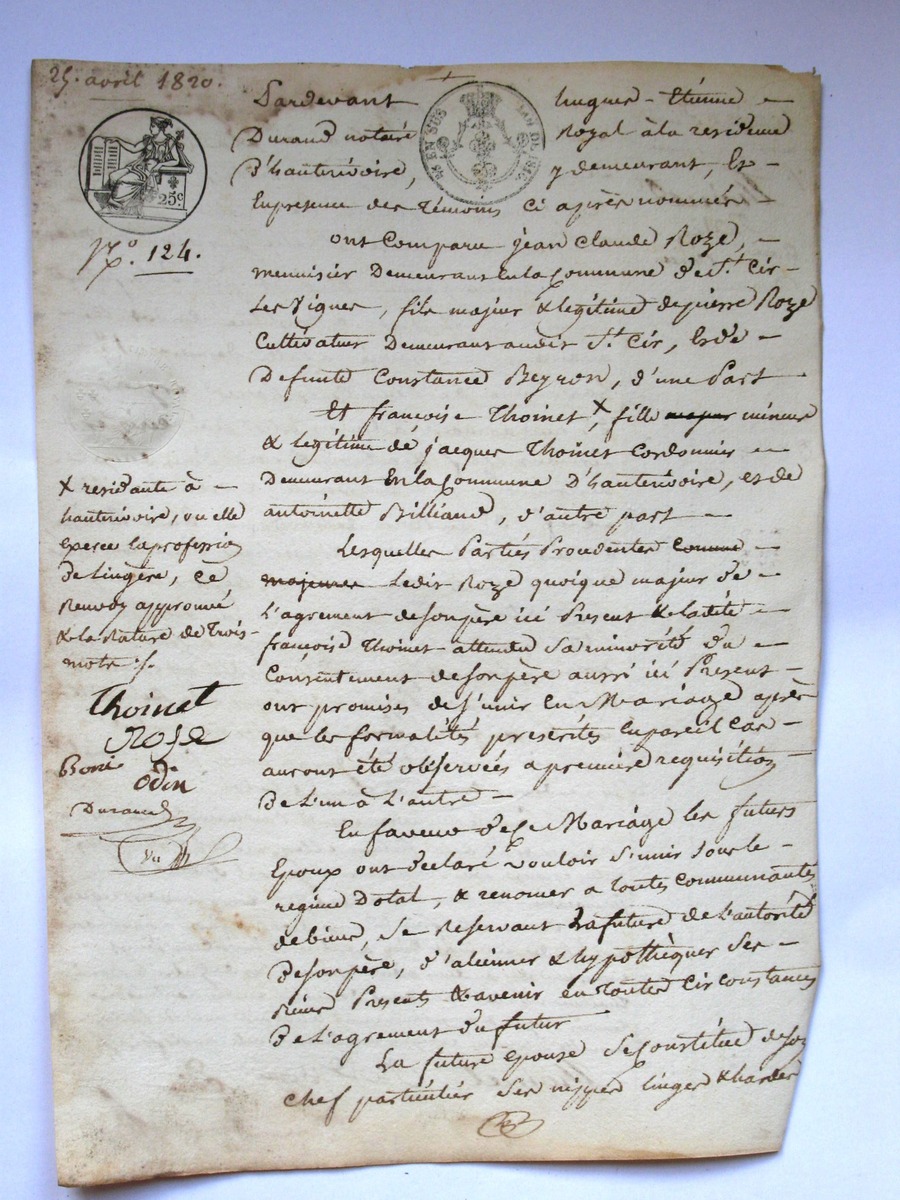 25. avril 1820.
25c.
EN SUS
LOI DE 1816
N.o 124.
Pardevant hugues - Etienne -
Durand notaire Royal à la residence
D'hauterivoire, y demeurant, Et -
En presence des témoins ci après nommés -
ont Comparu jean Claude Roze, -
menuisier Demeurant En la Commune de St. Cir -
Les Vignes, fils majeur & legitime de pierre Roze
Cultivateur Demeurant audit St. Cir, Et de -
Defunte Constance Beyron, d'une Part
Et françoise Thoinet x, fille majeur mineure
& legitime de jacques Thoinet Cordonnier -
Demeurant En la Commune D'hauterivoire, et de
antoinette Billiand, d'autre part -
Lesquelles Parties Procedentes comme -
majeures Ledit Roze quoique majeur de -
L'agrement de son père ici Present & la dite -
françoise Thoinet attendu sa minorité du -
Consentement de son père aussi ici Present -
ont promises de s'unir En Mariage après
que les formalités prescrites En pareil Cas -
auront été observées a première requisition
De L'un à L'autre -
En faveur de Ce Mariage les futurs
Epoux ont declaré vouloir S'unir sous le -
regime Dotal, & renoncer a toutes Communautés
de biens, Se Reservant La future de L'autorité
De son père, d'aliener & hypothèquer Ses -
Biens Presents & avenir en toutes Circonstances
De L'agrement du futur
La future epouse Se Constitue de son
Chef particulier Ses nippes linges & hardes
x residante à -
hauterivoire, ou elle
Exerce la profession
De Lingère, Ce
Renvoy approuvé
& la Rature de Trois -
mots ./.
Thoinet
Roze
Boni
Odin
Durand